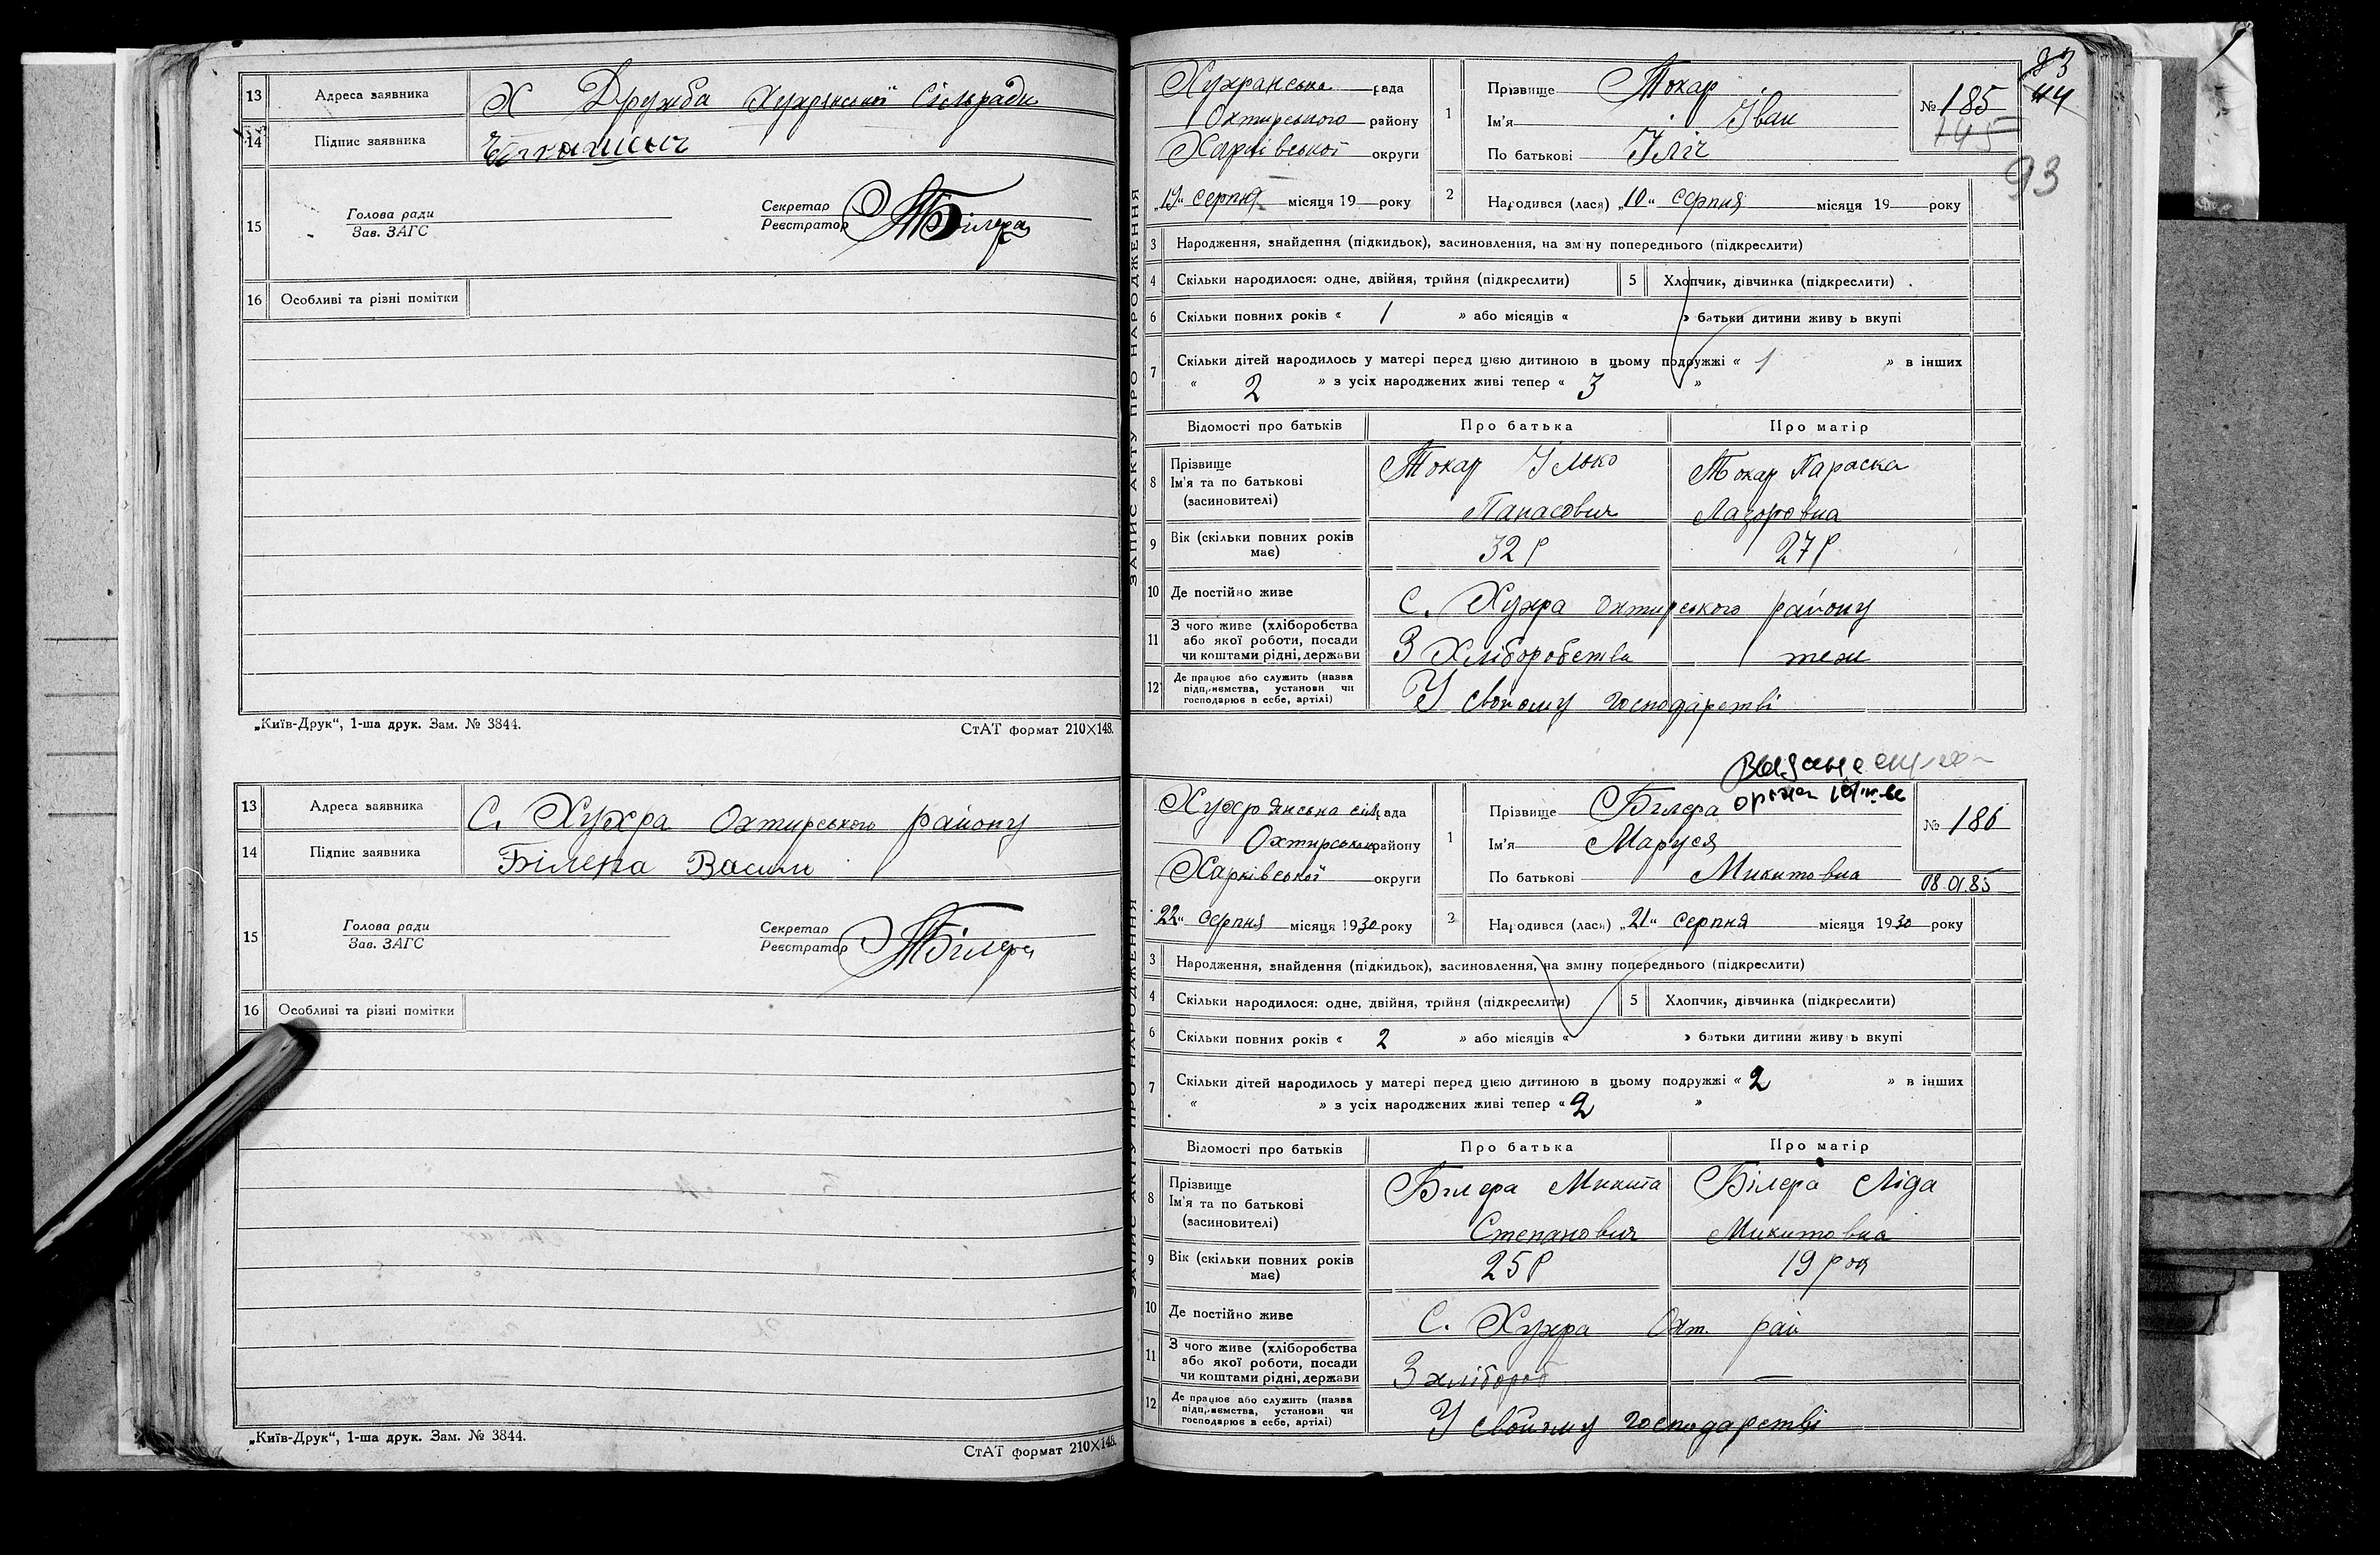 13 Адреса заявника Х Дружба Хухрянської Сільради
14 Підпис заявника
15 Голова ради
Зав. ЗАГС
Секретар
Реєстратор ТБілера
16 Особливі та різні помітки
„Київ-Друк“, 1-ша друк. Зам. № 3844.
СтАТ формат 210×148.
13 Адреса заявника С. Хухра Охтирського району
14 Підпис заявника Білера Васил
15 Голова ради
Зав. ЗАГС
Секретар
Реєстратор ТБілера
16 Особливі та різні помітки
„Київ-Друк“, 1-ша друк. Зам. № 3844.
СтАТ формат 210×148.
93
ЗАПИС АКТУ ПРО НАРОДЖЕННЯ
Хухранська рада
Охтирського району
Харківської округи
„19“ серпня місяця 19 року
1 Прізвище Токар
Ім'я Іван
По батькові Іліч
№ 185
145
2 Народився (лася) „10“ серпня місяця 19 року
3 Народження, знайдення (підкидьок), засиновлення, на зміну попереднього (підкреслити)
4 Скільки народилося: одне, двійня, трійня (підкреслити) 5 Хлопчик, дівчинка (підкреслити)
6 Скільки повних років « 1 » або місяців « » батьки дитини живуть вкупі
7 Скільки дітей народилось у матері перед цією дитиною в цьому подружжі « 1 » в інших
« 2 » з усіх народжених живі тепер « 3 »
Відомості про батьків Про батька Про матір
8 Прізвище
Ім'я та по батькові
(засиновителі)
Токар Ілько
Панасович
Токар Параска
Лазоровна
9 Вік (скільки повних років
має) 32 р 27 р
10 Де постійно живе С. Хухра Охтирського району
11 З чого живе (хліборобства
або якої роботи, посади
чи коштами рідні, держави
З Хліборобства теж
12 Де працює або служить (назва
підприємства, установи чи
господарює в себе, артілі)
У свойому господарстві
ЗАПИС АКТУ ПРО НАРОДЖЕННЯ
Хухрянська сіл рада
Охтирського району
Харківської округи
22“ серпня місяця 1930 року
1 Прізвище Білера
Ім'я Маруся
По батькові Микитовна
№ 186
08.01.85
2 Народився (лася) „21“ серпня місяця 1930 року
3 Народження, знайдення (підкидьок), засиновлення, на зміну попереднього (підкреслити)
4 Скільки народилося: одне, двійня, трійня (підкреслити) 5 Хлопчик, дівчинка (підкреслити)
6 Скільки повних років « 2 » або місяців « » батьки дитини живуть вкупі
7 Скільки дітей народилось у матері перед цією дитиною в цьому подружжі « 2 » в інших
« » з усіх народжених живі тепер « 2 »
Відомості про батьків Про батька Про матір
8 Прізвище
Ім'я та по батькові
(засиновителі)
Білера Микита
Степанович
Білера Ліда
Микитовна
9 Вік (скільки повних років
має) 25 р 19 рок
10 Де постійно живе С. Хухра Охт. рай
11 З чого живе (хліборобства
або якої роботи, посади
чи коштами рідні, держави
З хлібороб —
12 Де працює або служить (назва
підприємства, установи чи
господарює в себе, артілі)
У свойому господарстві